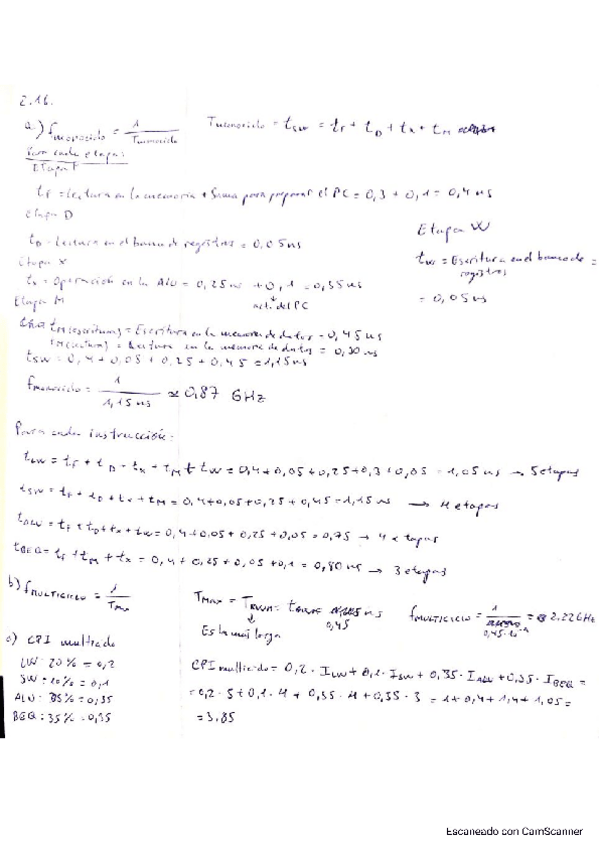 2.16.
a) fmonociclo = 1 / Tmonociclo    Tmonociclo = tSW = tF + tD + tX + tM
Para cada etapa
Etapa F
tF = Lectura en la memoria + Suma para preparar el PC = 0,3 + 0,1 = 0,4 ns
Etapa D
tD = Lectura en el banco de registros = 0,05 ns
Etapa W
tW = Escritura en el banco de registros
= 0,05 ns
Etapa X
tX = Operación en la ALU = 0,25 ns + 0,1 = 0,35 ns
act. del PC
Etapa M
tM(escritura) = Escritura en la memoria de datos = 0,45 ns
tM(lectura) = Lectura en la memoria de datos = 0,30 ns
tSW = 0,4 + 0,05 + 0,25 + 0,45 = 1,15 ns
fmonociclo = 1 / 1,15 ns ≈ 0,87 GHz
Para cada instrucción:
tLW = tF + tD + tX + tM + tW = 0,4 + 0,05 + 0,25 + 0,3 + 0,05 = 1,05 ns → 5 etapas
tSW = tF + tD + tX + tM = 0,4 + 0,05 + 0,25 + 0,45 = 1,15 ns → 4 etapas
tALU = tF + tD + tX + tW = 0,4 + 0,05 + 0,25 + 0,05 = 0,75 → 4 etapas
tBEQ = tF + tM + tX = 0,4 + 0,25 + 0,05 + 0,1 = 0,80 ns → 3 etapas
b) fMULTICICLO = 1 / TMAX    TMAX =    ns    fMULTICICLO = 1 / 0,45·10⁻⁹ = 2.22 GHz
0,45
Es la más larga
c) CPI multiciclo
LW: 20% = 0,2
SW: 10% = 0,1
ALU: 35% = 0,35
BEQ: 35% = 0,35
CPI multiciclo = 0,2 · ILW + 0,1 · ISW + 0,35 · IALU + 0,35 · IBEQ =
= 0,2 · 5 + 0,1 · 4 + 0,35 · 4 + 0,35 · 3 = 1 + 0,4 + 1,4 + 1,05 =
= 3.85
Escaneado con CamScanner